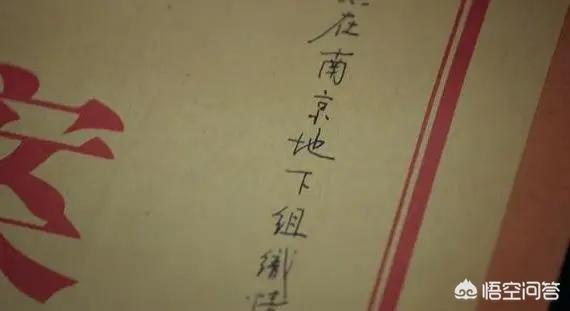 在南京地下组织情
案
悟空问答